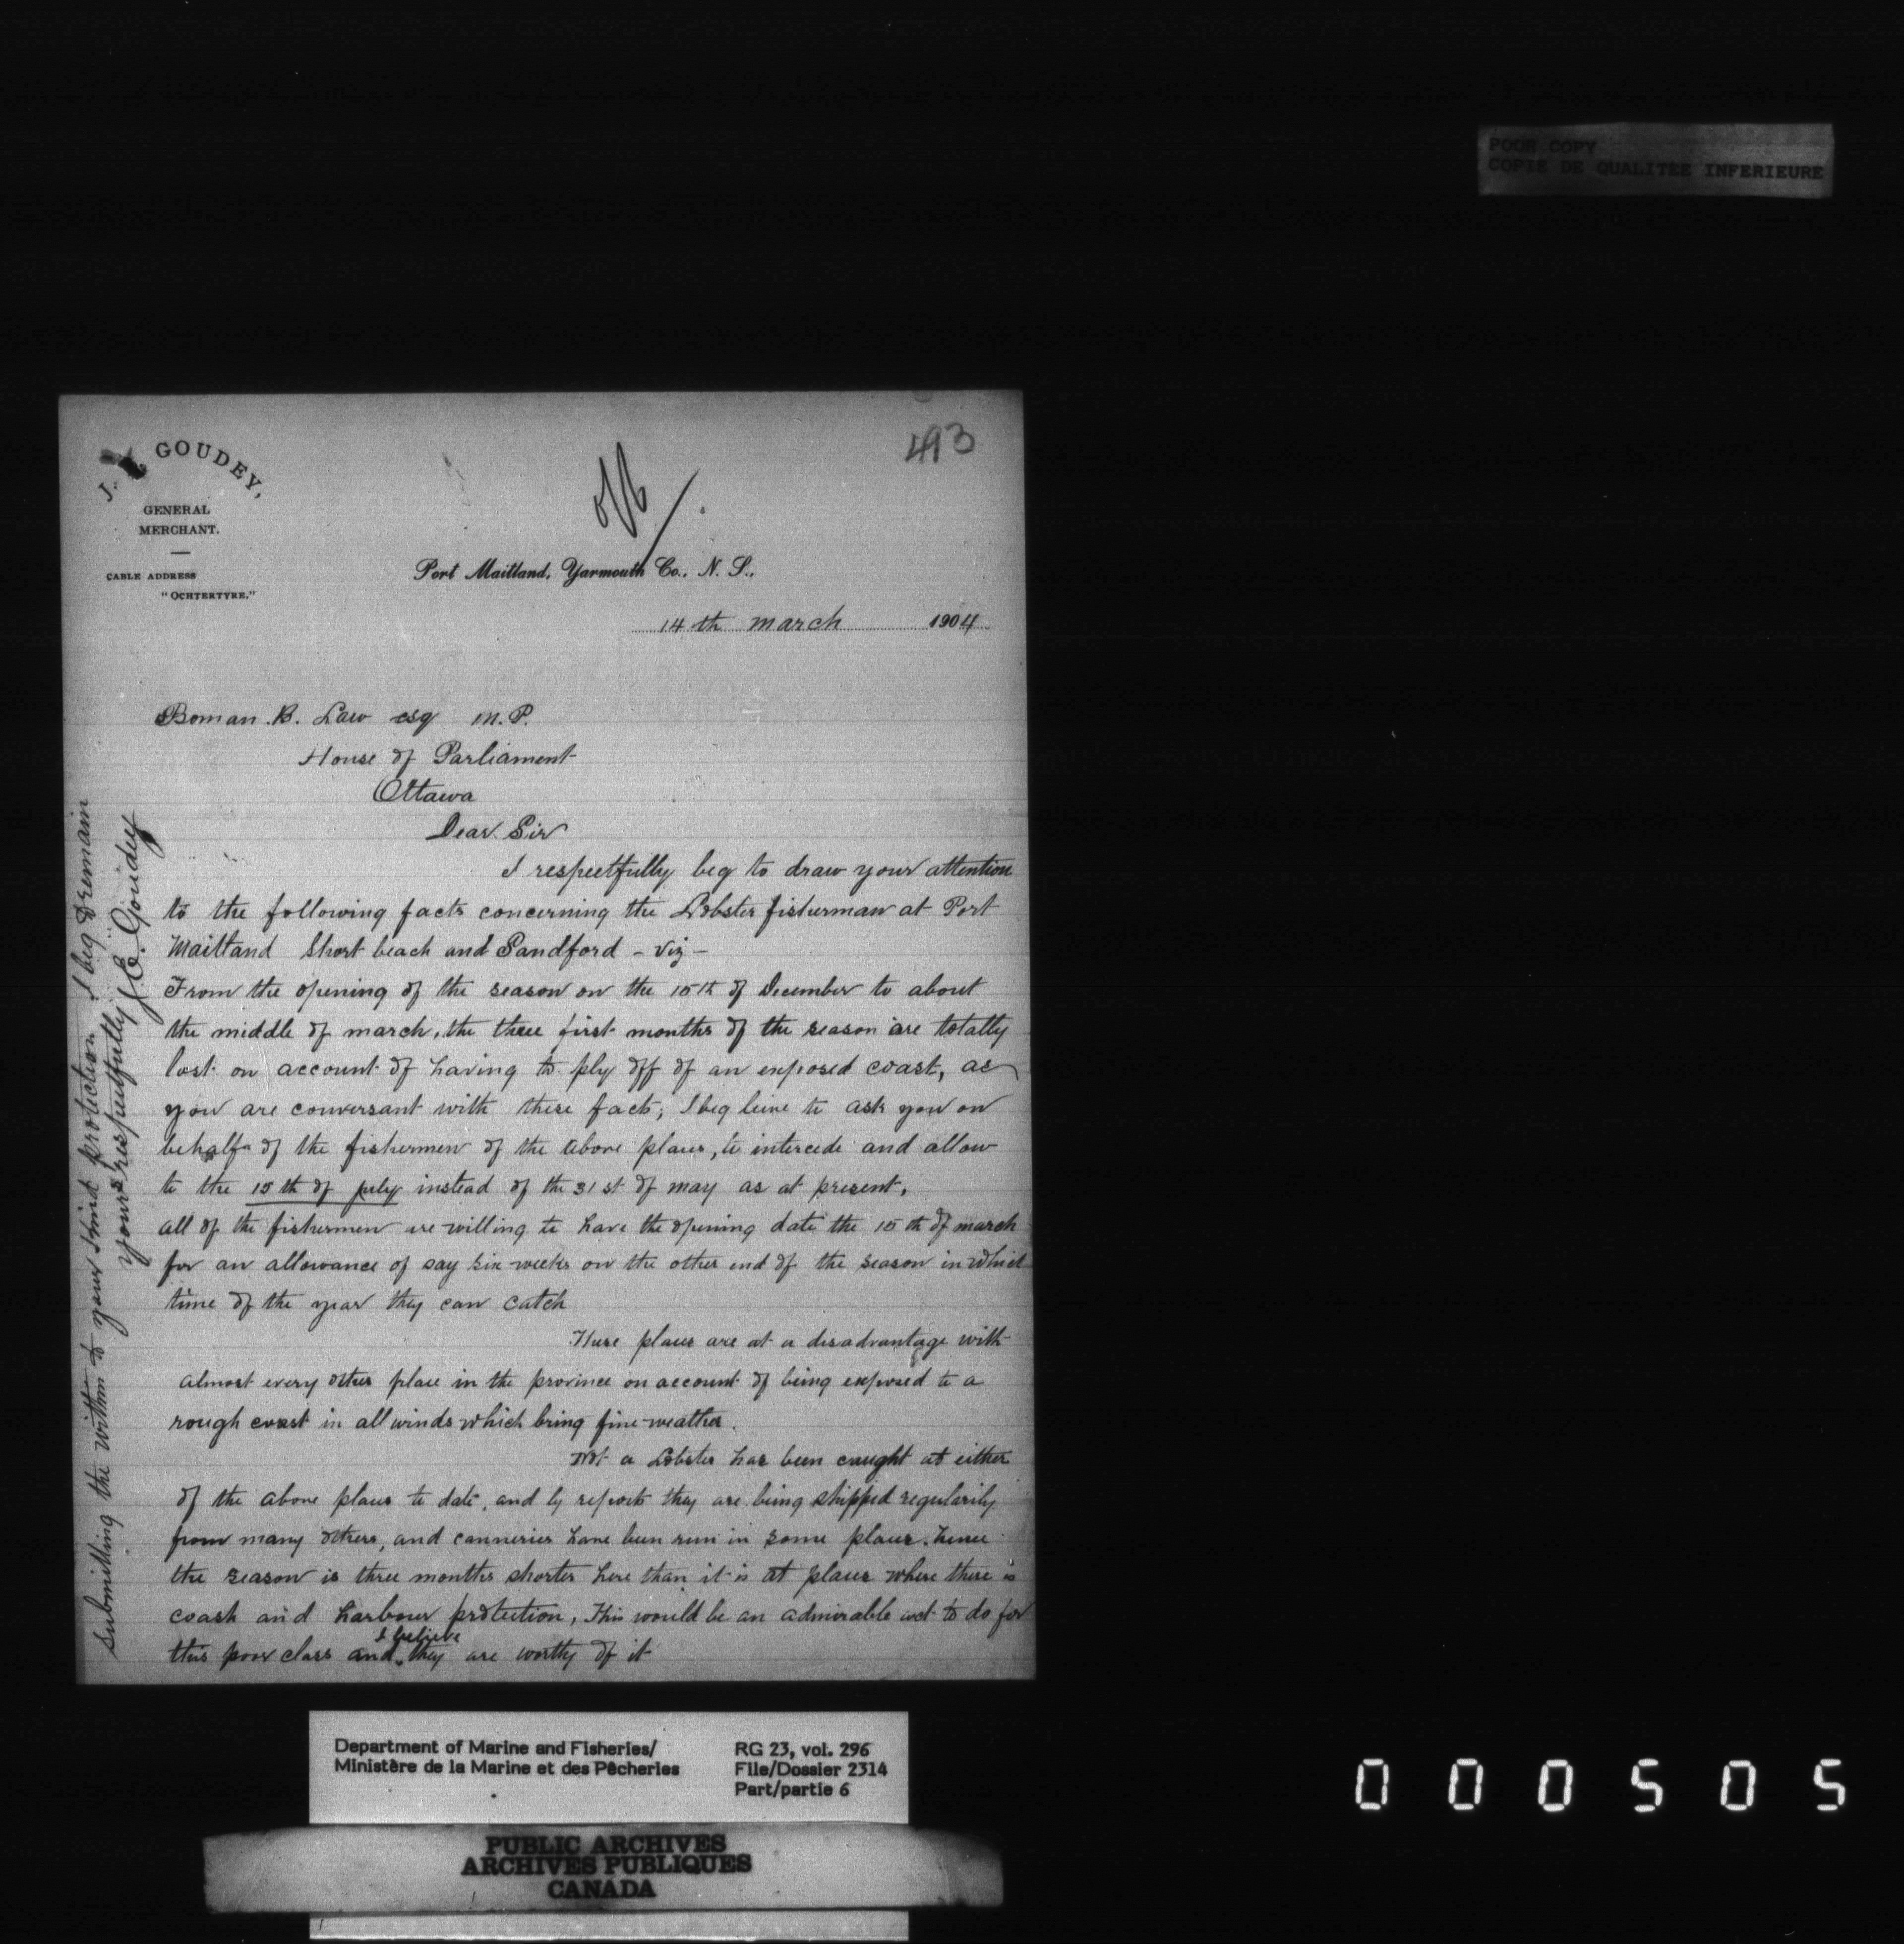 POOR COPY
COPIE DE QUALITEE INFERIEURE
493
J. E. GOUDEY,
GENERAL
MERCHANT.
CABLE ADDRESS
"OCHTERTYRE."
Port Maitland, Yarmouth Co., N. S.,
14th march 1904
Boman. B. Law esq M.P.
House of Parliament
Ottawa
Dear Sir
I respectfully beg to draw your attention
to the following facts concerning the Lobster fisherman at Port
Maitland Short beach and Sandford - viz -
From the opening of the season on the 15th of December to about
the middle of march, the three first months of the season are totally
lost on account of having to ply off of an exposed coast, as
you are conversant with these facts; I beg leive to ask you on
behalf of the fishermen of the above places, to intercede and allow
to the 15th of july instead of the 31st of may as at present,
all of the fishermen are willing to have the opening date the 15th of march
for an allowance of say six weeks on the other end of the season in which
time of the year they can catch
These places are at a disadvantage with
almost every other place in the province on account of being exposed to a
rough coast in all winds which bring fine weather.
Not a Lobster has been caught at either
of the above places to date, and by reports they are being shipped regularily
from many others, and canneries have been run in some places. hence
the season is three months shorter here than it is at places where there is
coast and harbour protection, This would be an admirable act to do for
this poor class and I believe they are worthy of it
Submitting the within to your kind protection I beg to remain
yours respectfully J.E. Goudey
Department of Marine and Fisheries/
Ministère de la Marine et des Pêcheries
RG 23, vol. 296
File/Dossier 2314
Part/partie 6
PUBLIC ARCHIVES
ARCHIVES PUBLIQUES
CANADA
000505